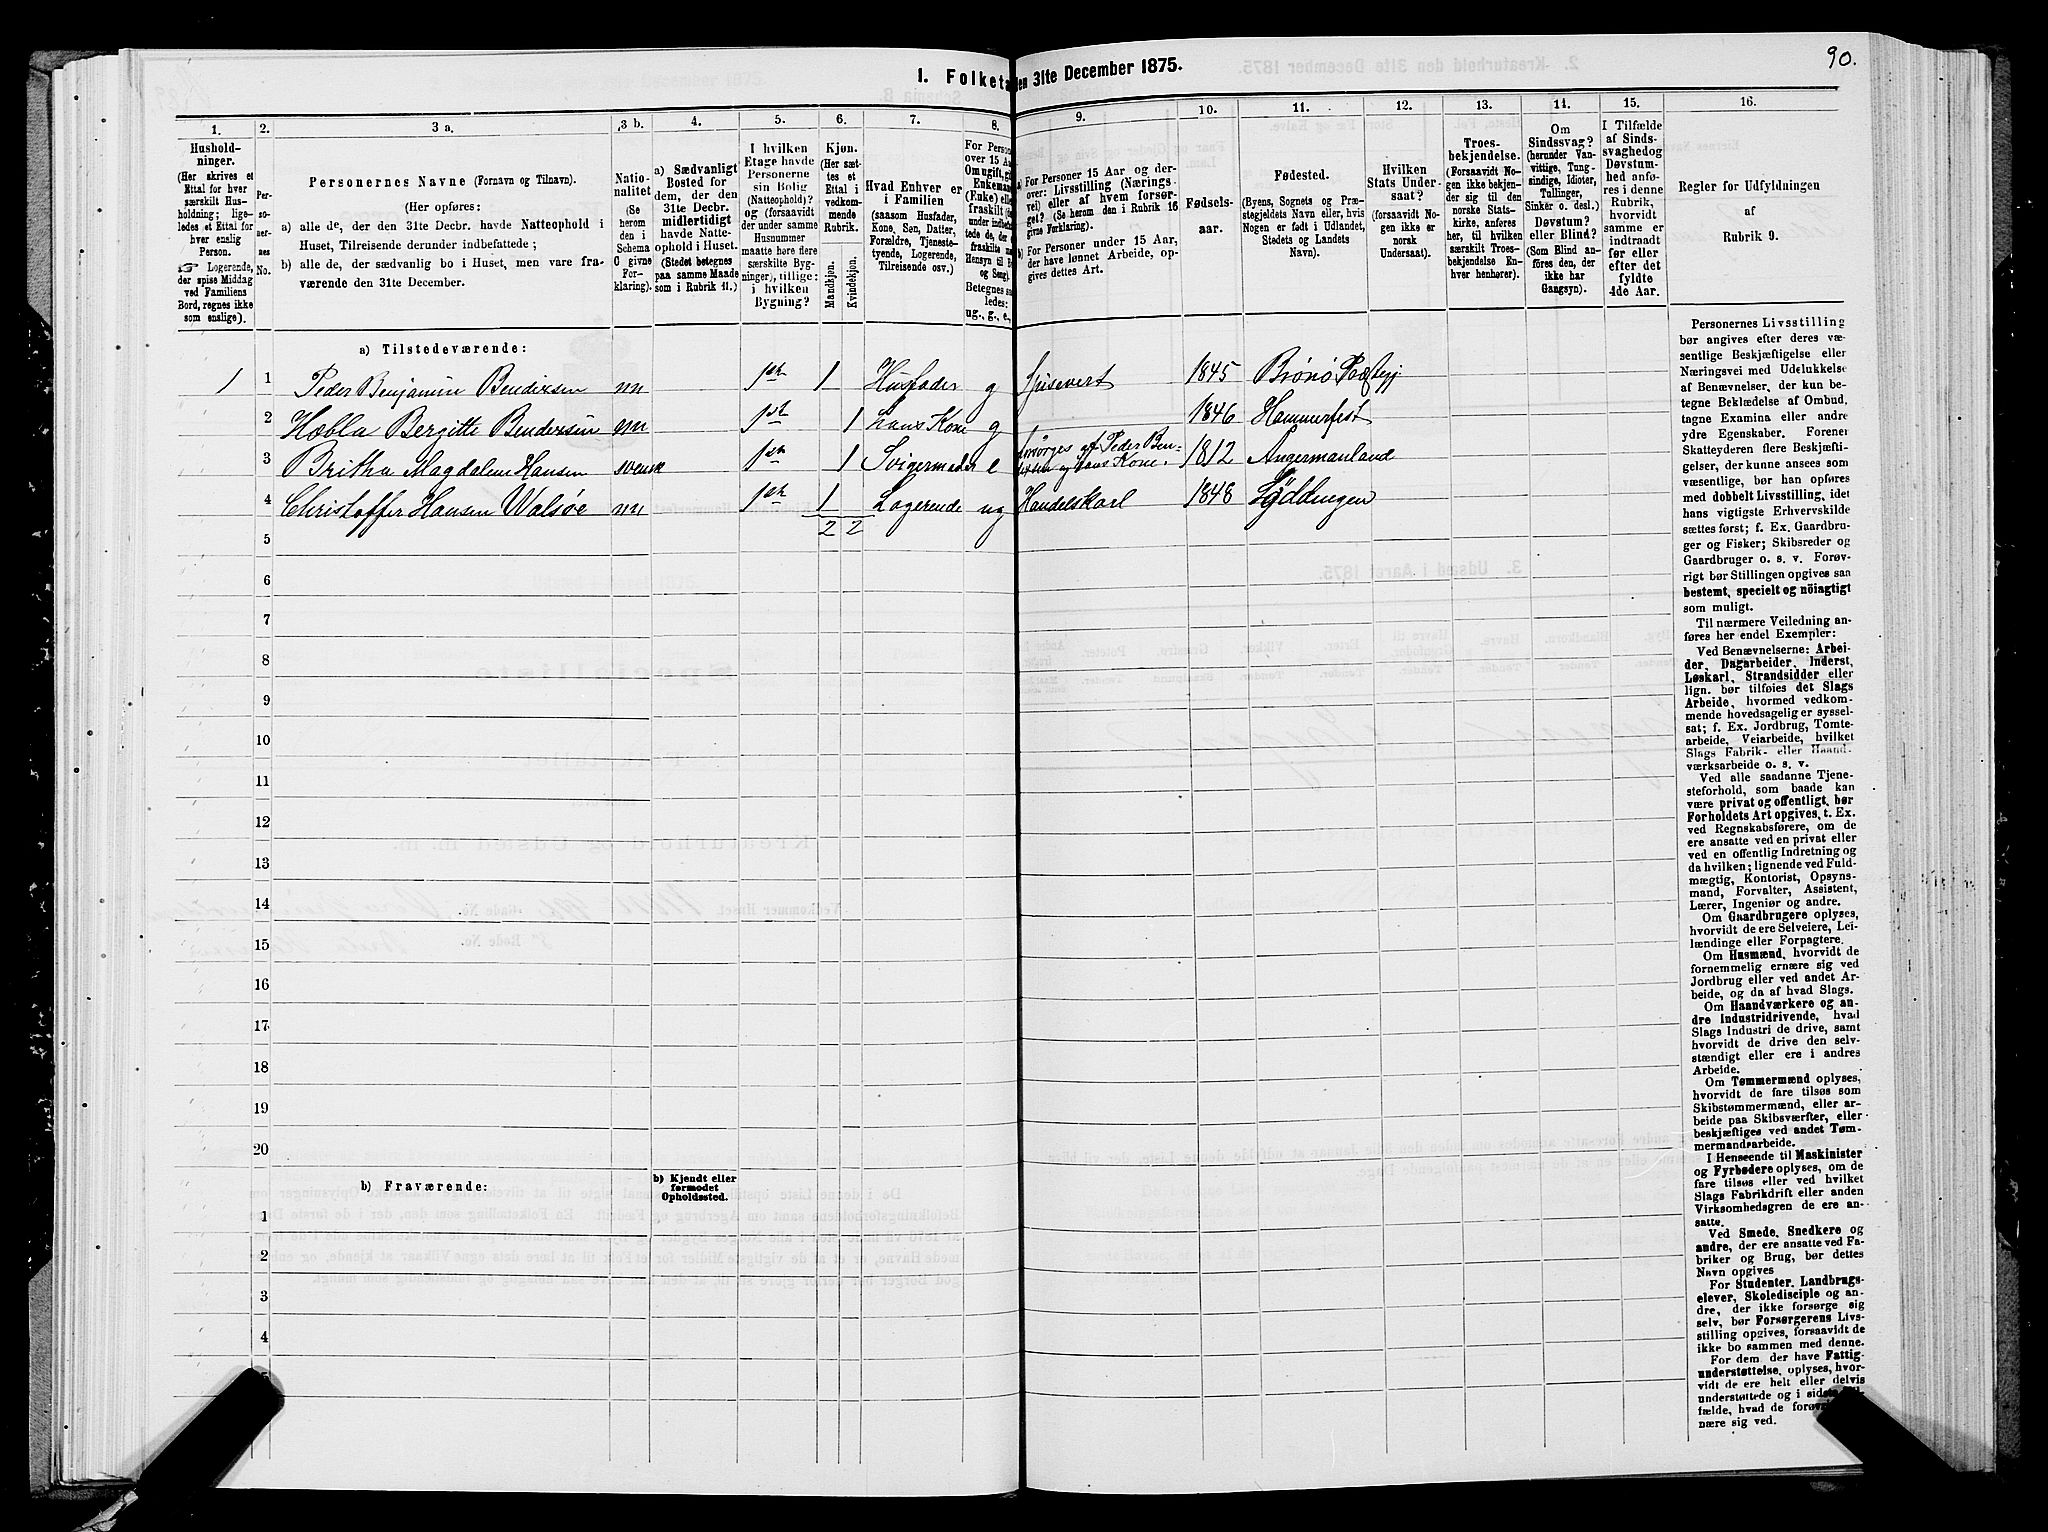 90.
1. Folketa
en 31te December 1875.
1. 2. 3 a. 3 b. 4. 5. 6. 7. 8. 9. 10. 11. 12. 13. 14. 15. 16.
Hushold-
ninger.
(Her skrives et
Ettal for hver
særskilt Hus-
holdning; lige-
ledes et Ettal for
hver enslig
Person.
☞ Logerende,
der spise Middag
ved Familiens
Bord, regnes ikke
som enslige).
Per-
so-
ner-
nes
No.
Personernes Navne (Fornavn og Tilnavn).
(Her opføres:
a) alle de, der den 31te Decbr. havde Natteophold i
Huset, Tilreisende derunder indbefattede;
b) alle de, der sædvanlig bo i Huset, men vare fra-
værende den 31te December.
Natio-
nalitet
(Se
herom
den i
Schema
C givne
For-
klaring).
a) Sædvanligt
Bosted for
dem, der den
31te Decbr.
midlertidigt
havde Natte-
ophold i Huset.
(Stedet betegnes
paa samme Maade
som i Rubrik 11.)
I hvilken
Etage havde
Personerne
sin Bolig
(Natteophold)?
og (forsaavidt
der under samme
Husnummer
maatte høre flere
særskilte Byg-
ninger), tillige:
i hvilken
Bygning?
Kjøn.
(Her sæt-
tes et
Ettal i
vedkom-
mende
Rubrik.
Mandkjøn.
Kvindekjøn.
Hvad Enhver er
i Familien
(saasom Husfader,
Kone, Søn, Datter,
Forældre, Tjeneste-
tyende, Logerende,
Tilreisende osv.)
For Person
over 15 Aa
Omugift, gi
Enkeman
(Enke) elle
fraskilt (
under indbe
tede de, der
fraskilte
Hensyn til B
og Seng).
Betegnes sa
ledes:
ug., g., e.,
a) For Personer 15 Aar og der-
over: Livsstilling (Nærings-
vei) eller af hvem forsør-
get? (Se herom den i Rubrik 16
givne Forklaring).
b) For Personer under 15 Aar,
der have lønnet Arbeide, op-
gives dettes Art.
Fødsels-
aar.
Fødested.
(Byens, Sognets og Præ-
stegjeldets Navn eller, hvis
Nogen er født i Udlandet,
Stedets og Landets
Navn).
Hvilken
Stats Under-
saat?
(forsaavidt No-
gen ikke er
norsk
Undersaat).
Troes-
bekjendelse.
(Forsaavidt No-
gen ikke bekjen-
der sig til den
norske Stats-
kirke, anføres
her, til hvilken
særskilt Troes-
bekjendelse En-
hver henhører).
Om
Sindssvag?
(herunder Van-
vittige, Tung-
sindige, Idioter,
Tullinger,
Sinker o. desl.)
Døvstum?
eller Blind?
(Som Blind an-
føres den, der
ikke har
Gangsyn).
I Tilfælde
af Sinds-
svaghed og
Døvstum-
hed anfø-
res i denne
Rubrik,
hvorvidt
samme er
indtraadt
før eller
efter det
fyldte
4de Aar.
Regler for Udfyldningen
af
Rubrik 9.
a) Tilstedeværende:
1 1 Peder Benjamin Bendixsen nn 1ste 1 Husfader g Huseiert 1845 Brönö Præstegj
2 Hæbla Bergitte Bendixsen nn 1st 1 hans Kone g 1846 Hammerfest
3 Britha Magdalene Hansen svensk 1ste 1 Svigermoder e forsörges af Peder Ben- dixsen og hans Kone. 1812 Angermanland
4 Christoffer Hansen Walsöe nn 1ste 1 Logerende ug Handelskarl 1848 Lödingen
2 2
5
6
7
8
9
10
11
12
13
14
15
16
17
18
19
20
b) Fraværende:
b) Kjendt eller
formodet
Opholdssted.
1
2
3
4
Personernes Livsstilling
bør angives efter deres væ-
sentlige Beskjæftigelse eller
Næringsvei med Udelukkelse
af Benævnelser, der kun be-
tegne Beklædelse af Ombud,
tagne Examina eller andre
ydre Egenskaber. Forener
Skatteyderen flere Beskjæfti-
gelser, der kunne ansees som
væsentlige, bør han opføres
med dobbelt Livsstilling, idet
hans vigtigste Erhvervskilde
sættes først; f. Ex. Gaardbru-
ger og Fisker; Skibsreder og
Gaardbruger o. s. v. Forøv-
rigt bør Stillingen opgives saa
bestemt, specielt og nöiagtigt
som muligt.
Til nærmere Veiledning an-
føres her endel Exempler:
Ved Benævnelserne: Arbei-
der, Dagarbeider, Inderst,
Løskarl, Strandsidder eller
lign. bør tilføies det Slags
Arbeide, hvormed vedkom-
mende hovedsagelig er syssel-
sat; f. Ex. Jordbrug, Tomte-
arbeide, Veiarbeide, hvilket
Slags Fabrik- eller Haand-
værksarbeide o. s. v.
Ved alle saadanne Tjene-
steforhold, som baade kan
være privat og offentligt, bør
Forholdets Art opgives, t. Ex.
ved Regnskabsførere, om de
ere ansatte ved en privat eller
ved en offentlig Indretning og
da hvilken; lignende ved Fuld-
mægtig, Kontorist, Opsyns-
mand, Forvalter, Assistent,
Lærer, Ingeniør og andre.
Om Gaardbrugere oplyses,
hvorvidt de ere Selveiere, Lei-
lændinge eller Forpagtere.
Om Husmænd, hvorvidt de
fornemmelig ernære sig ved
Jordbrug eller ved andet Ar-
beide, og da af hvad Slags.
Om Haandværkere og an-
dre Industridrivende, hvad
Slags Industri de drive, samt
hvorvidt de drive den selv-
stændigt eller ere i andres
Arbeide.
Om Tømmermænd oplyses,
hvorvidt de fare tilsøs som
Skibstømmermænd, eller ar-
beide paa Skibsværfter, eller
beskjæftiges ved andet Tøm-
mermandsarbeide.
I Henseende til Maskinister
og Fyrbødere oplyses, om de
fare tilsøs eller ved hvilket
Slags Fabrikdrift eller anden
Virksomhedsgren de ere an-
satte.
Ved Smede, Snedkere og
andre, der ere ansatte ved Fa-
briker og Brug, bør dettes
Navn opgives
For Studenter, Landbrugs-
elever, Skoledisciple og an-
dre, der ikke forsørge sig
selv, bør Forsørgerens Livs-
stilling opgives, forsaavidt de
ikke bo sammen med denne.
For dem, der have Fattig-
understøttelse, oplyses, hvor-
vidt de ere helt eller delvis
understøttede og i sidste Til-
fælde, hvad de forøv
nære sig ved.